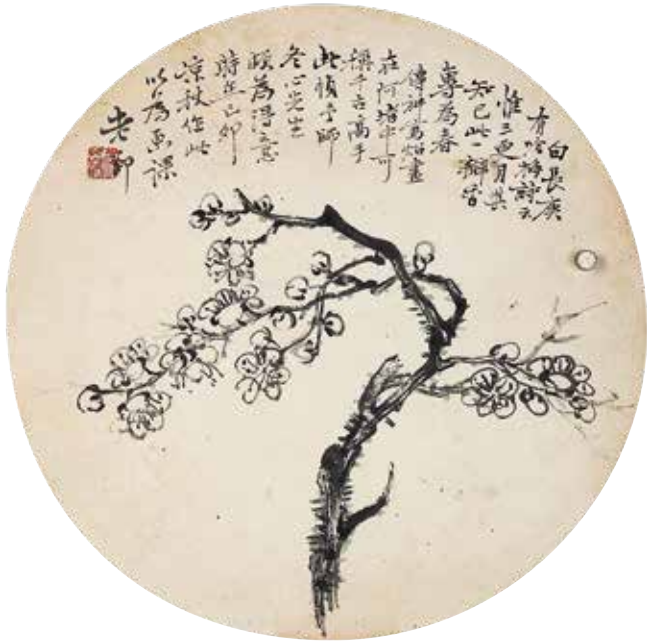 白長庚
有咏梅詩云
惟三更月其
知己此一瓣香
專為春
傳神寫炤畫
在阿堵中可
稱千古高手
此師
冬心先生
頗為得意
時在乙卯
涼秋作此
以為畫課
老